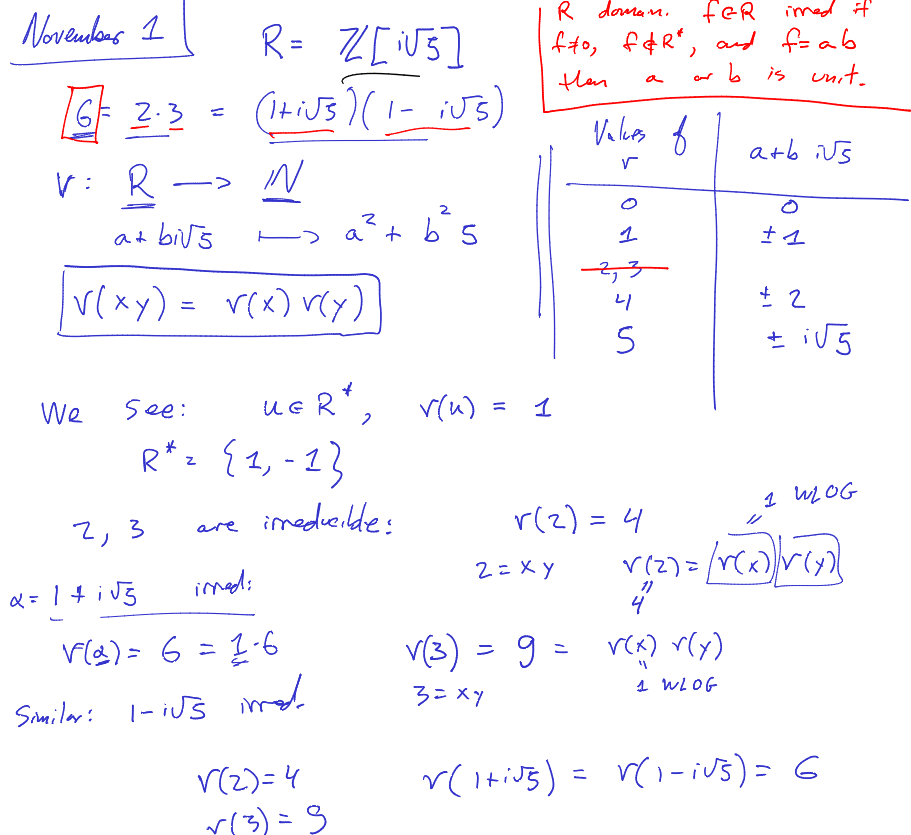 November 1
R = ℤ[i√5]
R domain. f∈R irred if
f≠0, f∉R*, and f=ab
then a or b is unit.
6 = 2·3 = (1+i√5)(1-i√5)
r: R → ℕ
a+bi√5 ↦ a² + b²5
r(xy) = r(x) r(y)
Values of r | a+b i√5
0 | 0
1 | ±1
2, 3
4 | ±2
5 | ± i√5
We see: u∈R*, r(u) = 1
R* = {1, -1}
2, 3 are irreducible:
r(2) = 4
2 = xy r(2) = r(x) r(y)
4 = 1 WLOG
α = 1 + i√5 irred:
r(α) = 6 = 1·6
r(3) = 9 = r(x) r(y)
3 = xy 1 WLOG
Similar: 1-i√5 irred.
r(2)=4 r(1+i√5) = r(1-i√5) = 6
r(3) = 9